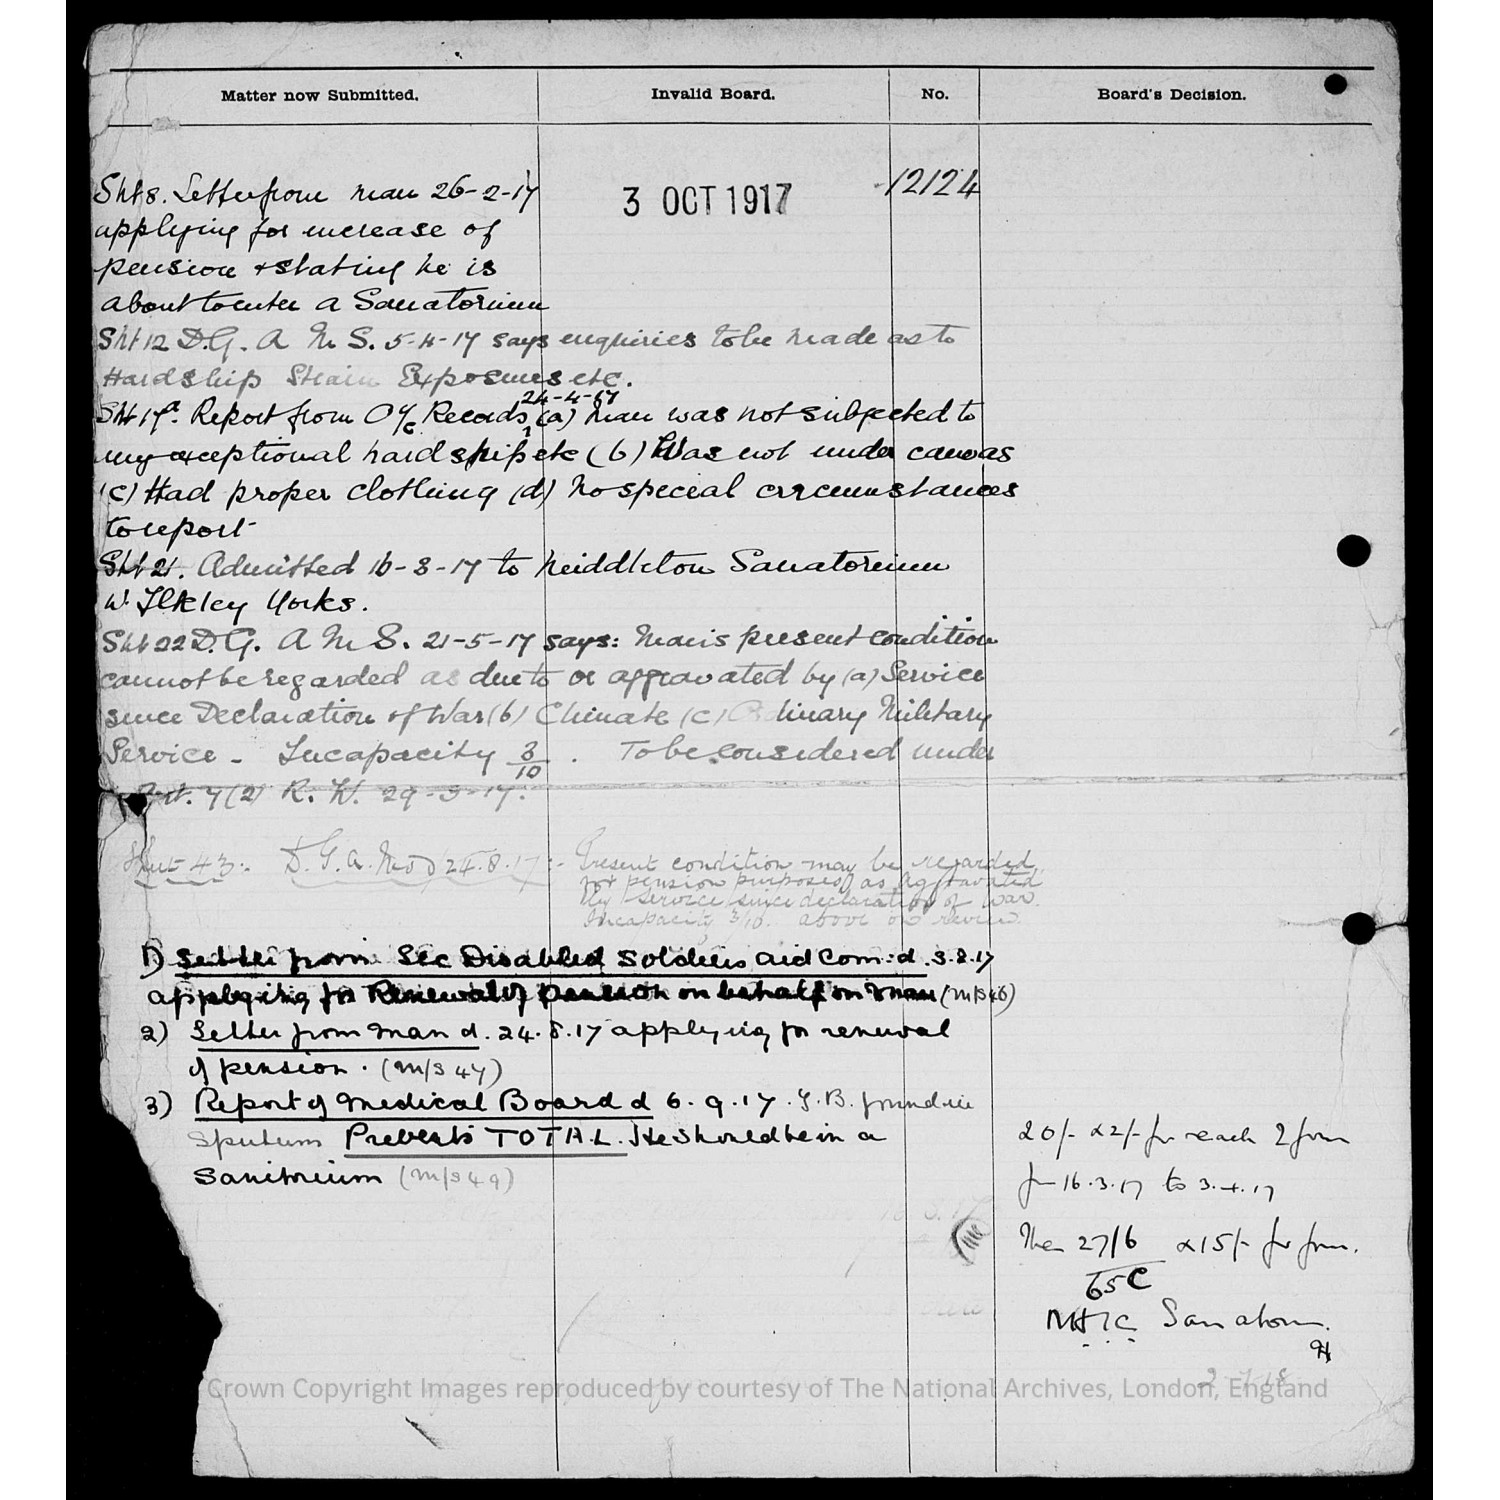 Matter now Submitted. Invalid Board. No. Board's Decision.
3 OCT 1917 12124
Sht 8. Letter from man 26-2-17
applying for increase of
pension & stating he is
about to enter a Sanatorium
Sht 12 D.G. A M S. 5-4-17 says enquiries to be made as to
Hardship Strain Exposures etc.
24-4-17
Sht 17a. Report from O/c Records, (a) Man was not subjected to
any exceptional hardship etc (b) Was not under canvas
(c) Had proper clothing (d) No special circumstances
to report
Sht 21. Admitted 16-3-17 to Middleton Sanatorium
Ilkley Yorks.
Sht 22 D.G. A M S. 21-5-17 says: Man's present condition
cannot be regarded as due to or aggravated by (a) Service
since Declaration of War (b) Climate (c) Ordinary Military
Service - Incapacity 3/10. To be considered under
Art. 7(2) R. W. 29-3-17.
Sheet 43:- D.G.A.M.S 24.8.17:- Present condition may be regarded
for pension purposes as aggravated
by service since declaration of war.
Incapacity 3/10. above on review.
1) Letter from Sec Disabled Soldiers aid Com: d. 3.8.17
applying for Renewal of pension on behalf on man (M/S 46)
2) Letter from man d. 24.8.17 applying for renewal
of pension. (M/S 47)
3) Report of Medical Board d 6.9.17. T.B. found in
Sputum Prevents TOTAL. He should be in a
Sanitorium (M/S 49)
20/- & 2/- for each 2 from
16.3.17 to 3.4.17
Then 27/6 & 15/- for from.
65C
Sanatorm.
Crown Copyright Images reproduced by courtesy of The National Archives, London, England